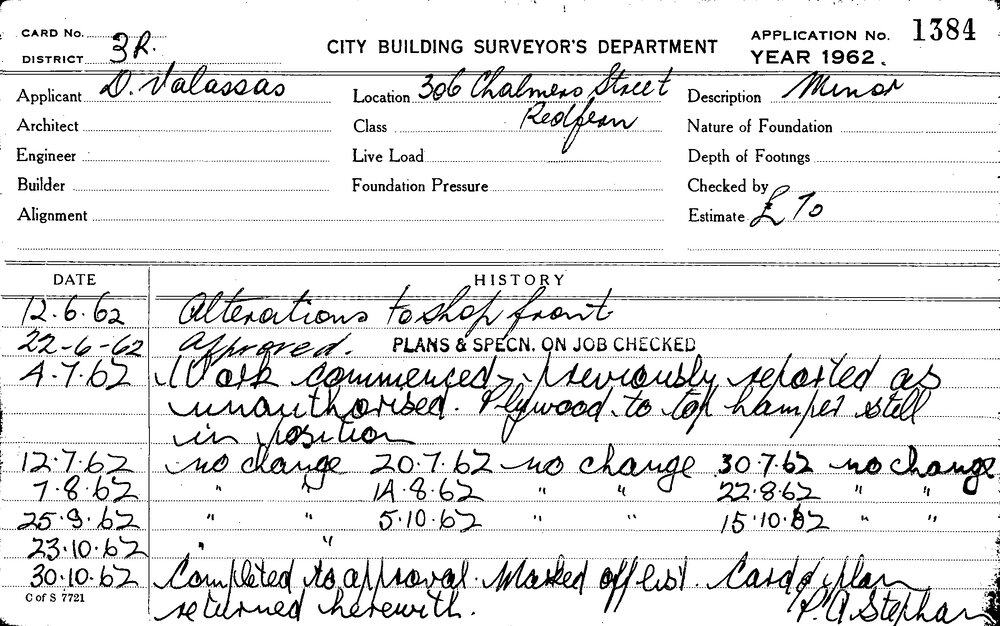 CARD No.
DISTRICT 3R.
CITY BUILDING SURVEYOR'S DEPARTMENT
APPLICATION No. 1384
YEAR 1962.
Applicant D. Valassas
Location 306 Chalmers Street
Redfern
Description Minor
Architect
Class
Nature of Foundation
Engineer
Live Load
Depth of Footings
Builder
Foundation Pressure
Checked by
Alignment
Estimate £70
DATE HISTORY
12.6.62 Alterations to shop front
22-6-62 Approved. PLANS & SPECN. ON JOB CHECKED
4.7.62 Work commenced - previously reported as
unauthorised. Plywood to top hamper still
in position
12.7.62 no change 20.7.62 no change 30.7.62 no change
7.8.62 " " 14.8.62 " " 22.8.62 " "
25.9.62 " " 5.10.62 " " 15.10.62 " "
23.10.62 " "
30.10.62 Completed to approval. Marked off list. Card & plan
returned herewith. P. A. Stephan
C of S 7721